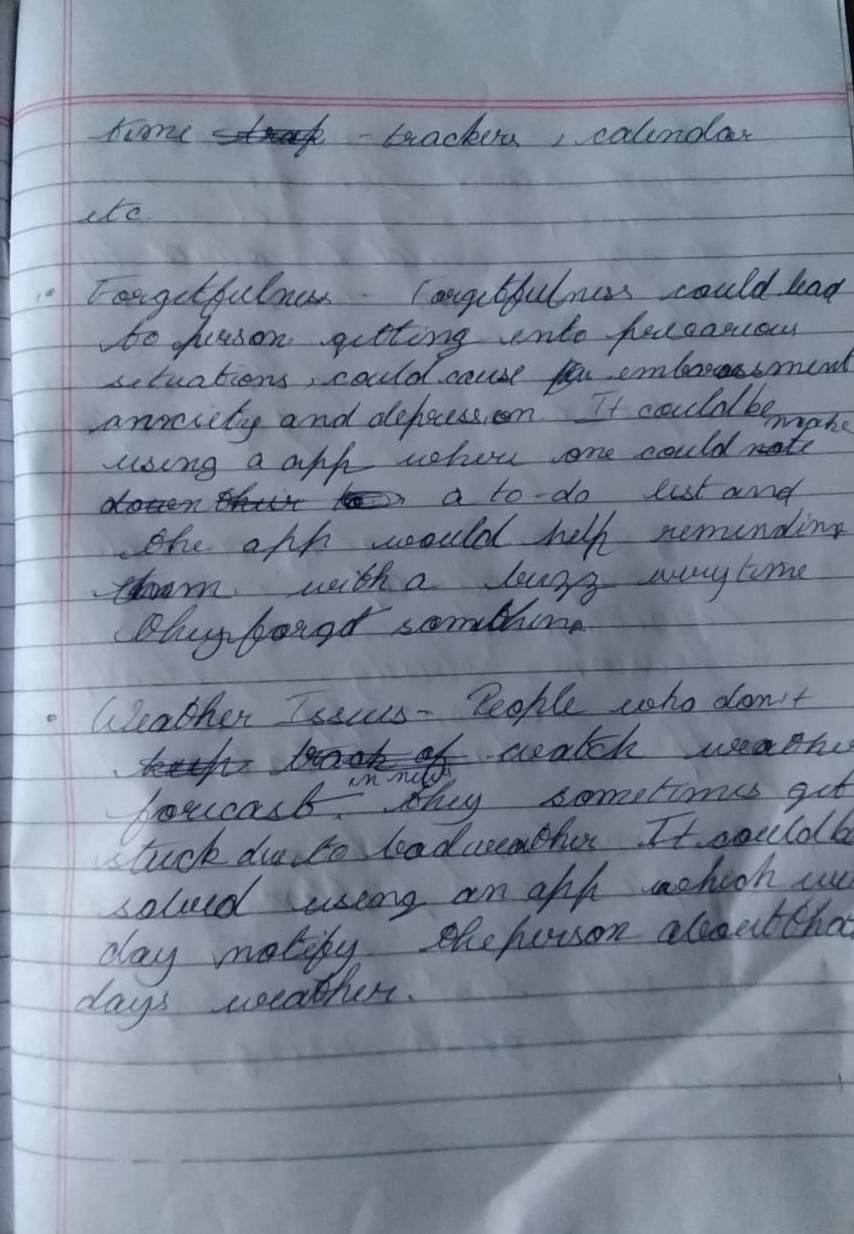 time - trackers, calendar
etc.
Forgetfulness - Forgetfulness could lead
to person getting into precarious
situations, could cause embarossment
anxiety and depression. It could be
using a app where one could make
a to-do list and
the app would help reminding
them with a buzz everytime
they forgot something
Weather Issues - People who don't
watch weathe
forecast in news. They sometimes get
stuck due to bad weather It could b
solved using an app which
day notify the person about tha
days weather.